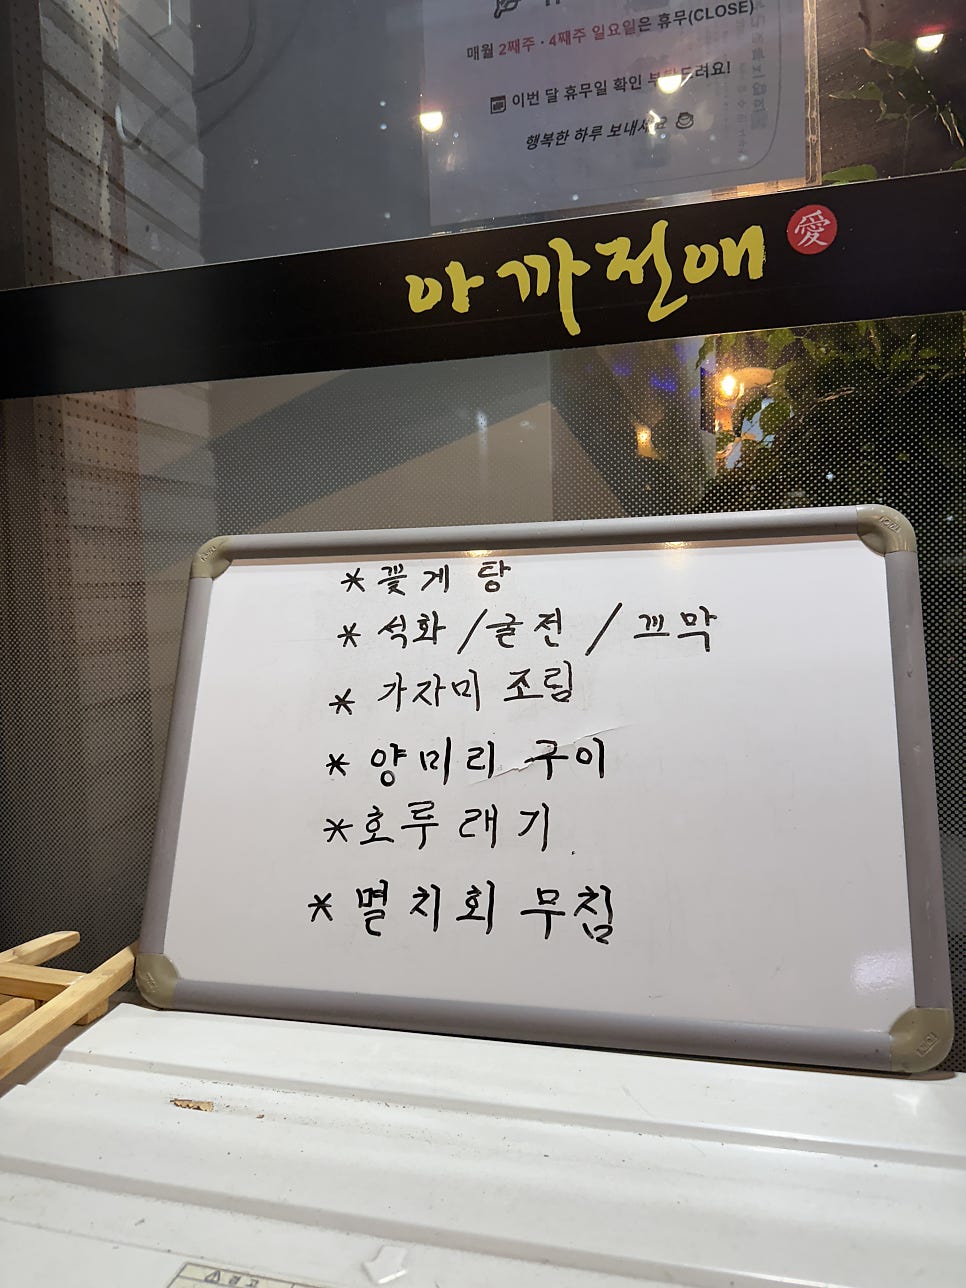 매월 2째주 · 4째주 일요일은 휴무(CLOSE)
이번 달 휴무일 확인 부탁드려요!
행복한 하루 보내세요
아까전애 愛
* 꽃게 탕
* 석화 / 굴전 / 꼬막
* 가자미 조림
* 양미리 구이
* 호루래기
* 멸치회 무침